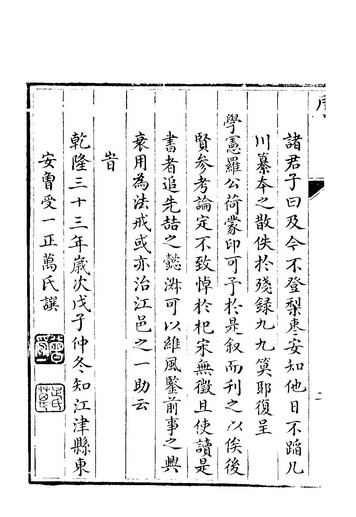 諸君子曰及今不登梨棗安知他日不蹈几
川纂本之散佚於殘録九九簣耶復呈
學憲羅公荷蒙印可予於是叙而刊之以俟後
賢參考論定不致悼於杞宋無徵且使讀是
書者追先喆之懿淑可以維風鑒前事之興
衰用為法戒或亦治江邑之一助云
旹
乾隆三十三年歲次戊子仲冬知江津縣東
安曾受一正萬氏譔